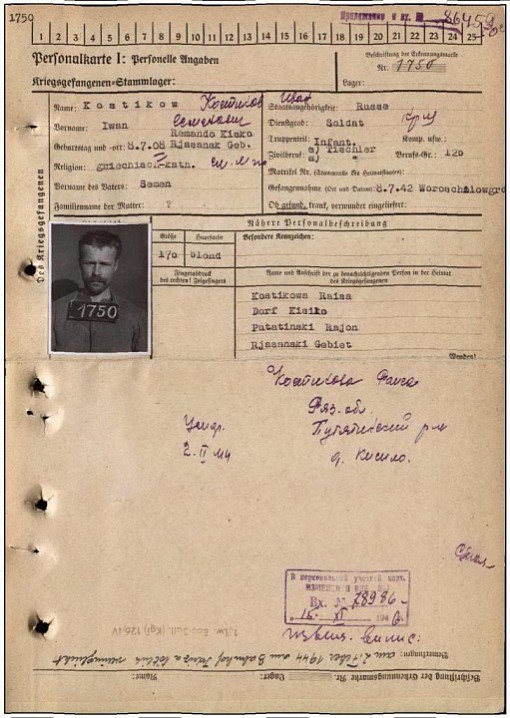 1750
Приложение к вх. № 86459
1 2 3 4 5 6 7 8 9 10 11 12 13 14 15 16 17 18 19 20 21 22 23 24 25
Personalkarte I: Personelle Angaben
Kriegsgefangenen-Stammlager:
Beschriftung der Erkennungsmarke
Nr. 1750
Lager:
Des Kriegsgefangenen
Name: Kostikow Костиков Иван
Vorname: Iwan Семенович
Remando Kisko
Geburtstag und -ort: 8.7.08 Rjasanak Geb.
Religion: griechisch-kath.
Vorname des Vaters: Semen
Familienname der Mutter: ?
Staatsangehörigkeit: Russe
Dienstgrad: Soldat кр-ц
Truppenteil: Infant. Komp. usw.:
Zivilberuf: a) Tischler Berufs-Gr.: 12b
Matrikel Nr. (Stammrolle des Heimatstaates):
Gefangennahme (Ort und Datum): 8.7.42 Woroschilowgrad
Ob gesund, krank, verwundet eingeliefert:
Nähere Personalbeschreibung
Größe
Haarfarbe
Besondere Kennzeichen:
170 blond
Fingerabdruck
des rechten! Zeigefingers
Name und Anschrift der zu benachrichtigenden Person in der Heimat
des Kriegsgefangenen
1750
Kostikowa Raisa
Dorf Kisiko
Putatinski Rajon
Rjasanski Gebiet
Wenden!
Костикова Раиса
Ряз. обл.
Умер. Путятинский р-н
2.II 44 д. Кисило.
В персональный учетный мат.
Вх. № 78986
15 XI 194
Bemerkungen: am 2. Feber 1944 am Bahnhof
Beschriftung der Erkennungsmarke Nr. Lager: Name: